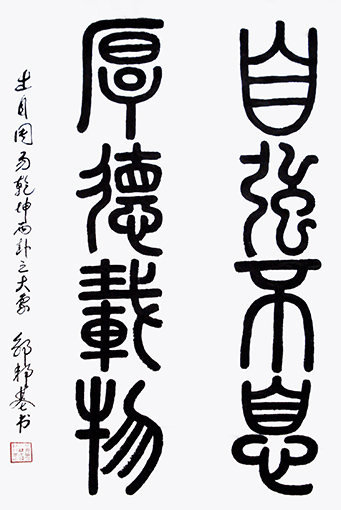 自强不息
厚德載物
出自周易乾坤两卦之大象